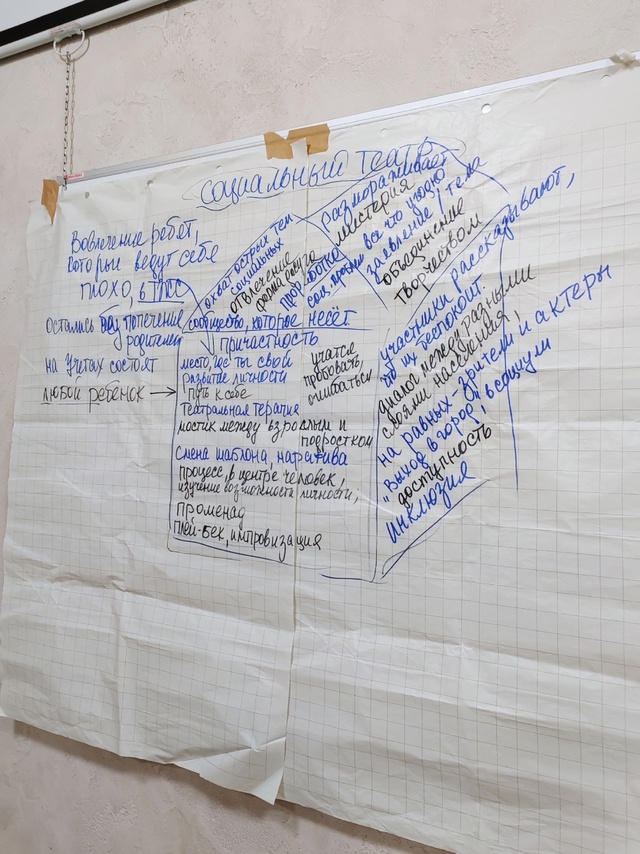 социальный театр
Вовлечение ребят,
которые ведут себя
плохо, в ТЖС
остались без попечения
родителей
на учётах состоят
любой ребёнок →
охват острых тем
социальных
отвлечение
форма досуга
проф.
размораживает
мистерия
все что угодно
заявление / тела
объединение
творчеством
сообщество, которое несёт.
причастность
место, где ты свой
развитие личности
путь к себе
учатся
пробовать,
ошибаться
театральная терапия
мостик между взрослым и
подростком
Смена шаблона, нарратива
процесс, в центре человек,
изучение возможности личности,
променад
плей-бек, импровизация
участники рассказывают,
что их беспокоит.
диалог между разными
слоями населения,
на равных - зрители и актеры
"Выход в город, в социум
доступность
инклюзия